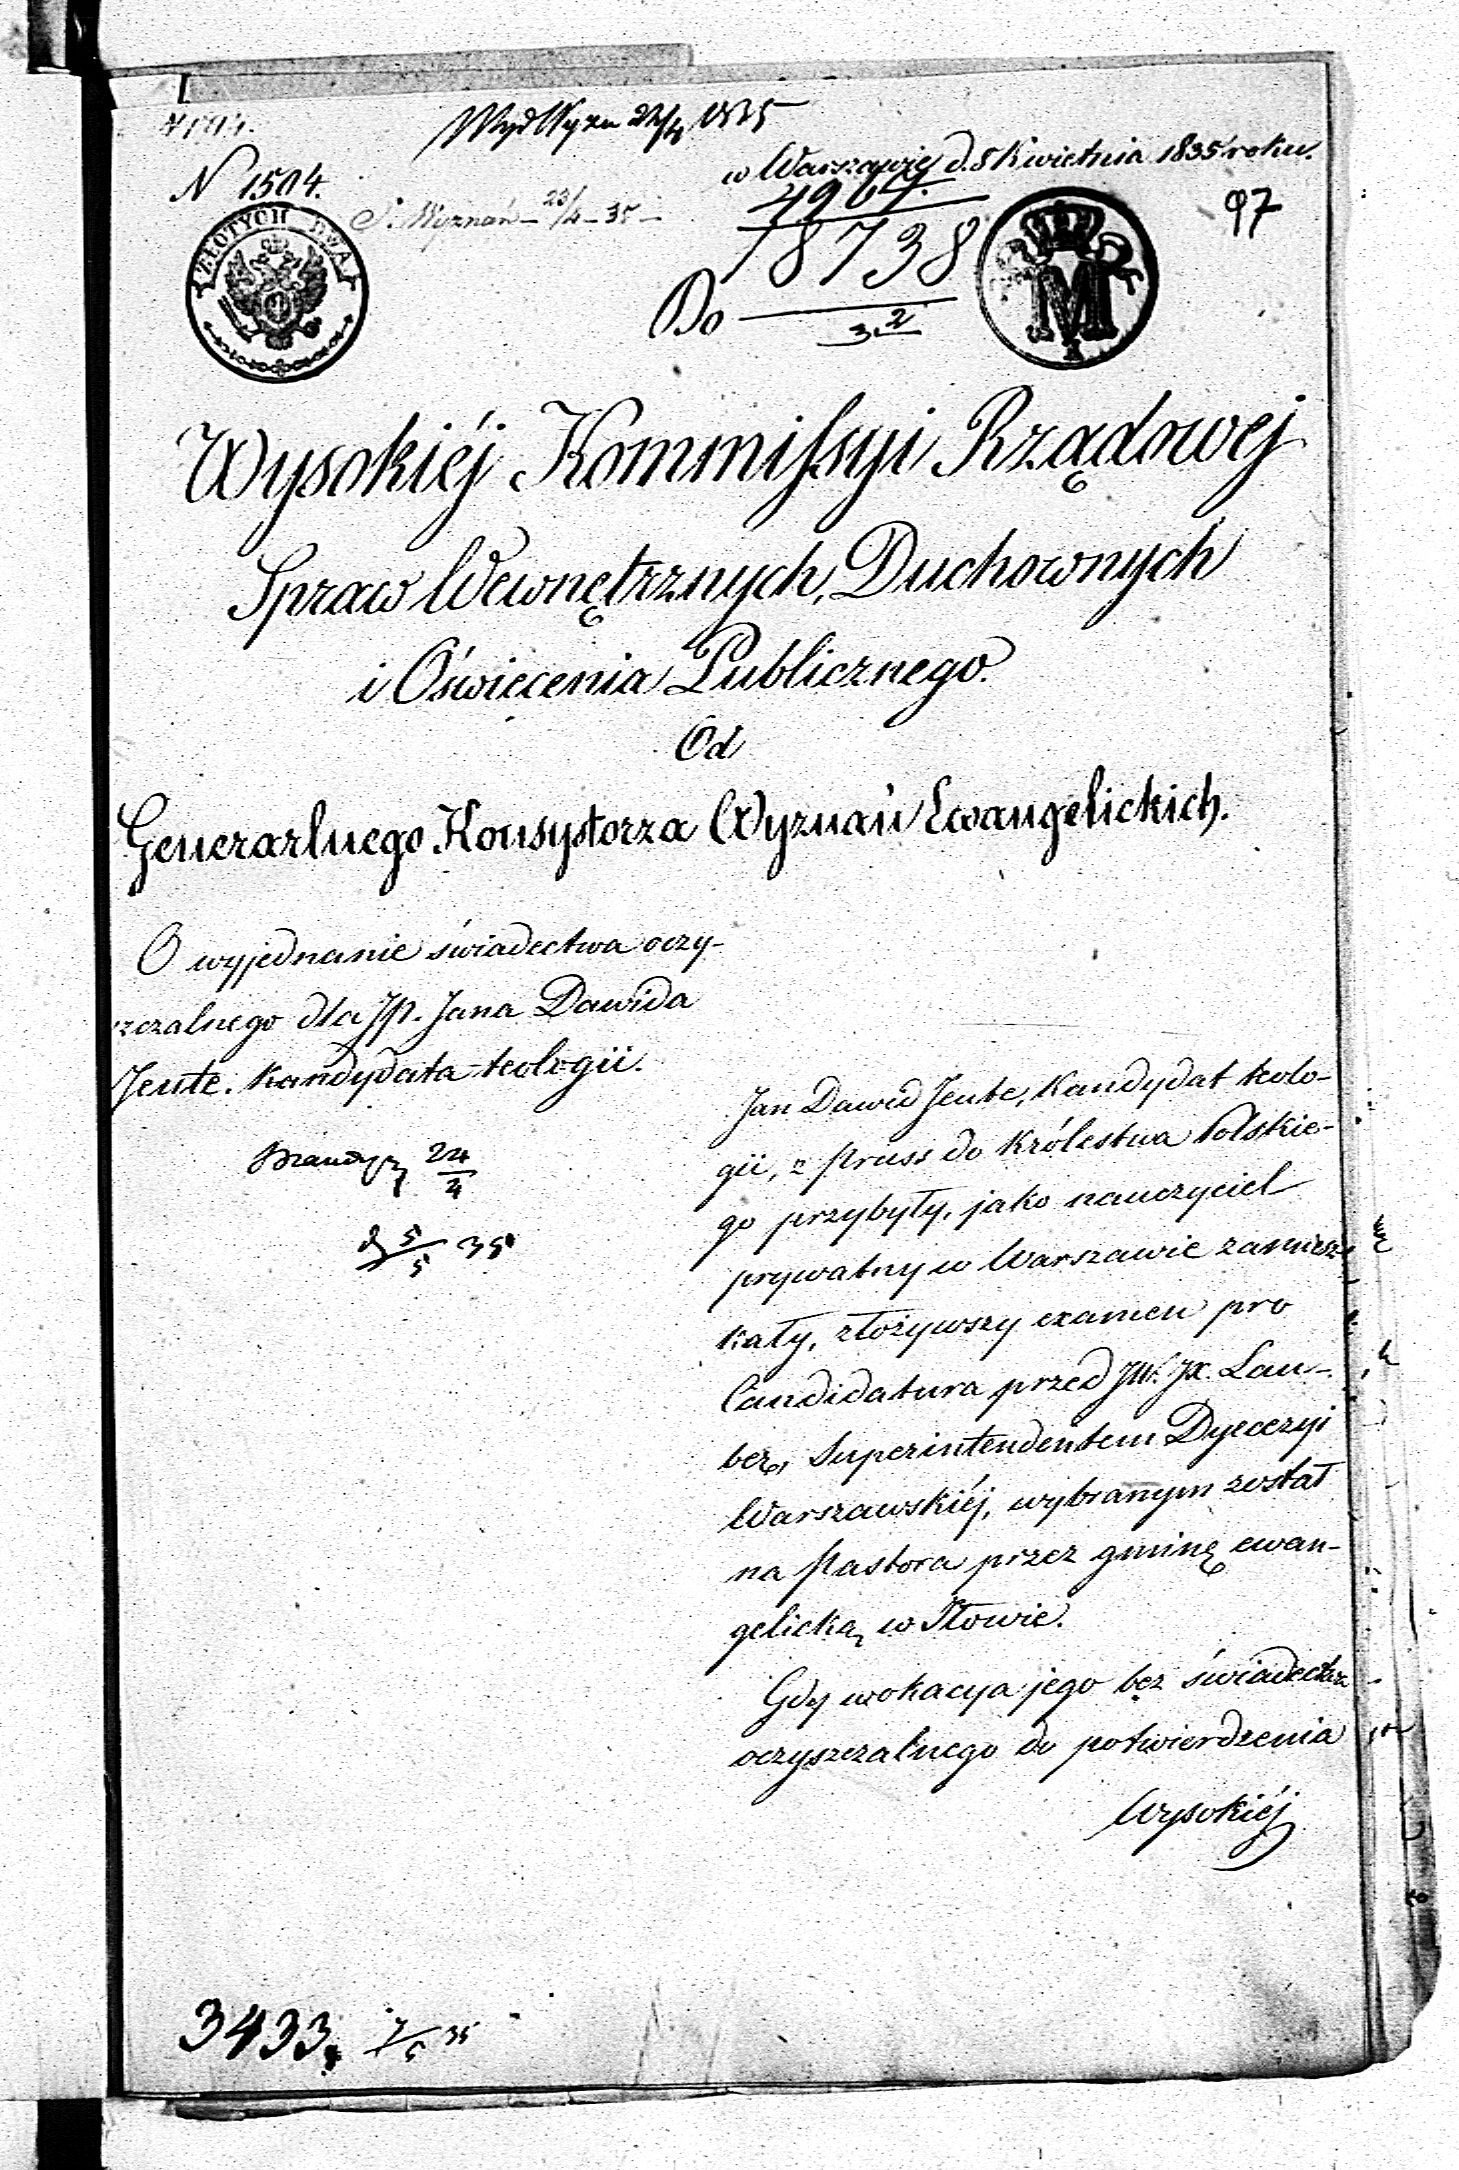 N 1504.
WydWyzn 22/4 1835
w Warszawie d. 8 Kwietnia 1835 roku.
S. Wyznań - 23/4 - 35 -
97
4967.
18738
3.2
ZŁOTYCH DWA
M
Do
Wysokiéj Kommissyi Rządowej
Spraw Wewnętrznych, Duchownych
i Oświecenia Publicznego.
Od
Generarlnego Konsystorza Wyznań Ewangelickich.
O wyjednanie świadectwa oczy-
szczalnego dla JP. Jana Dawida
Jeute. Kandydata teologii.
24/4
5/5 35
Jan Dawid Jeute, Kandydat teolo-
gii, z Pruss do Królestwa Polskie-
go przybyły, jako nauczyciel
prywatny w Warszawie zamiesz
kały, złożywszy examen pro
Candidatura przed JW. JX. Lau-
ber, Superintendentem Dyecezyi
Warszawskiéj, wybranym został
na Pastora przez gminę ewan-
gelicką w Iłowie.
Gdy wokacya jego bez świadectwa
oczyszczalnego do potwierdzenia
Wysokiéj
3433. 7/5 35